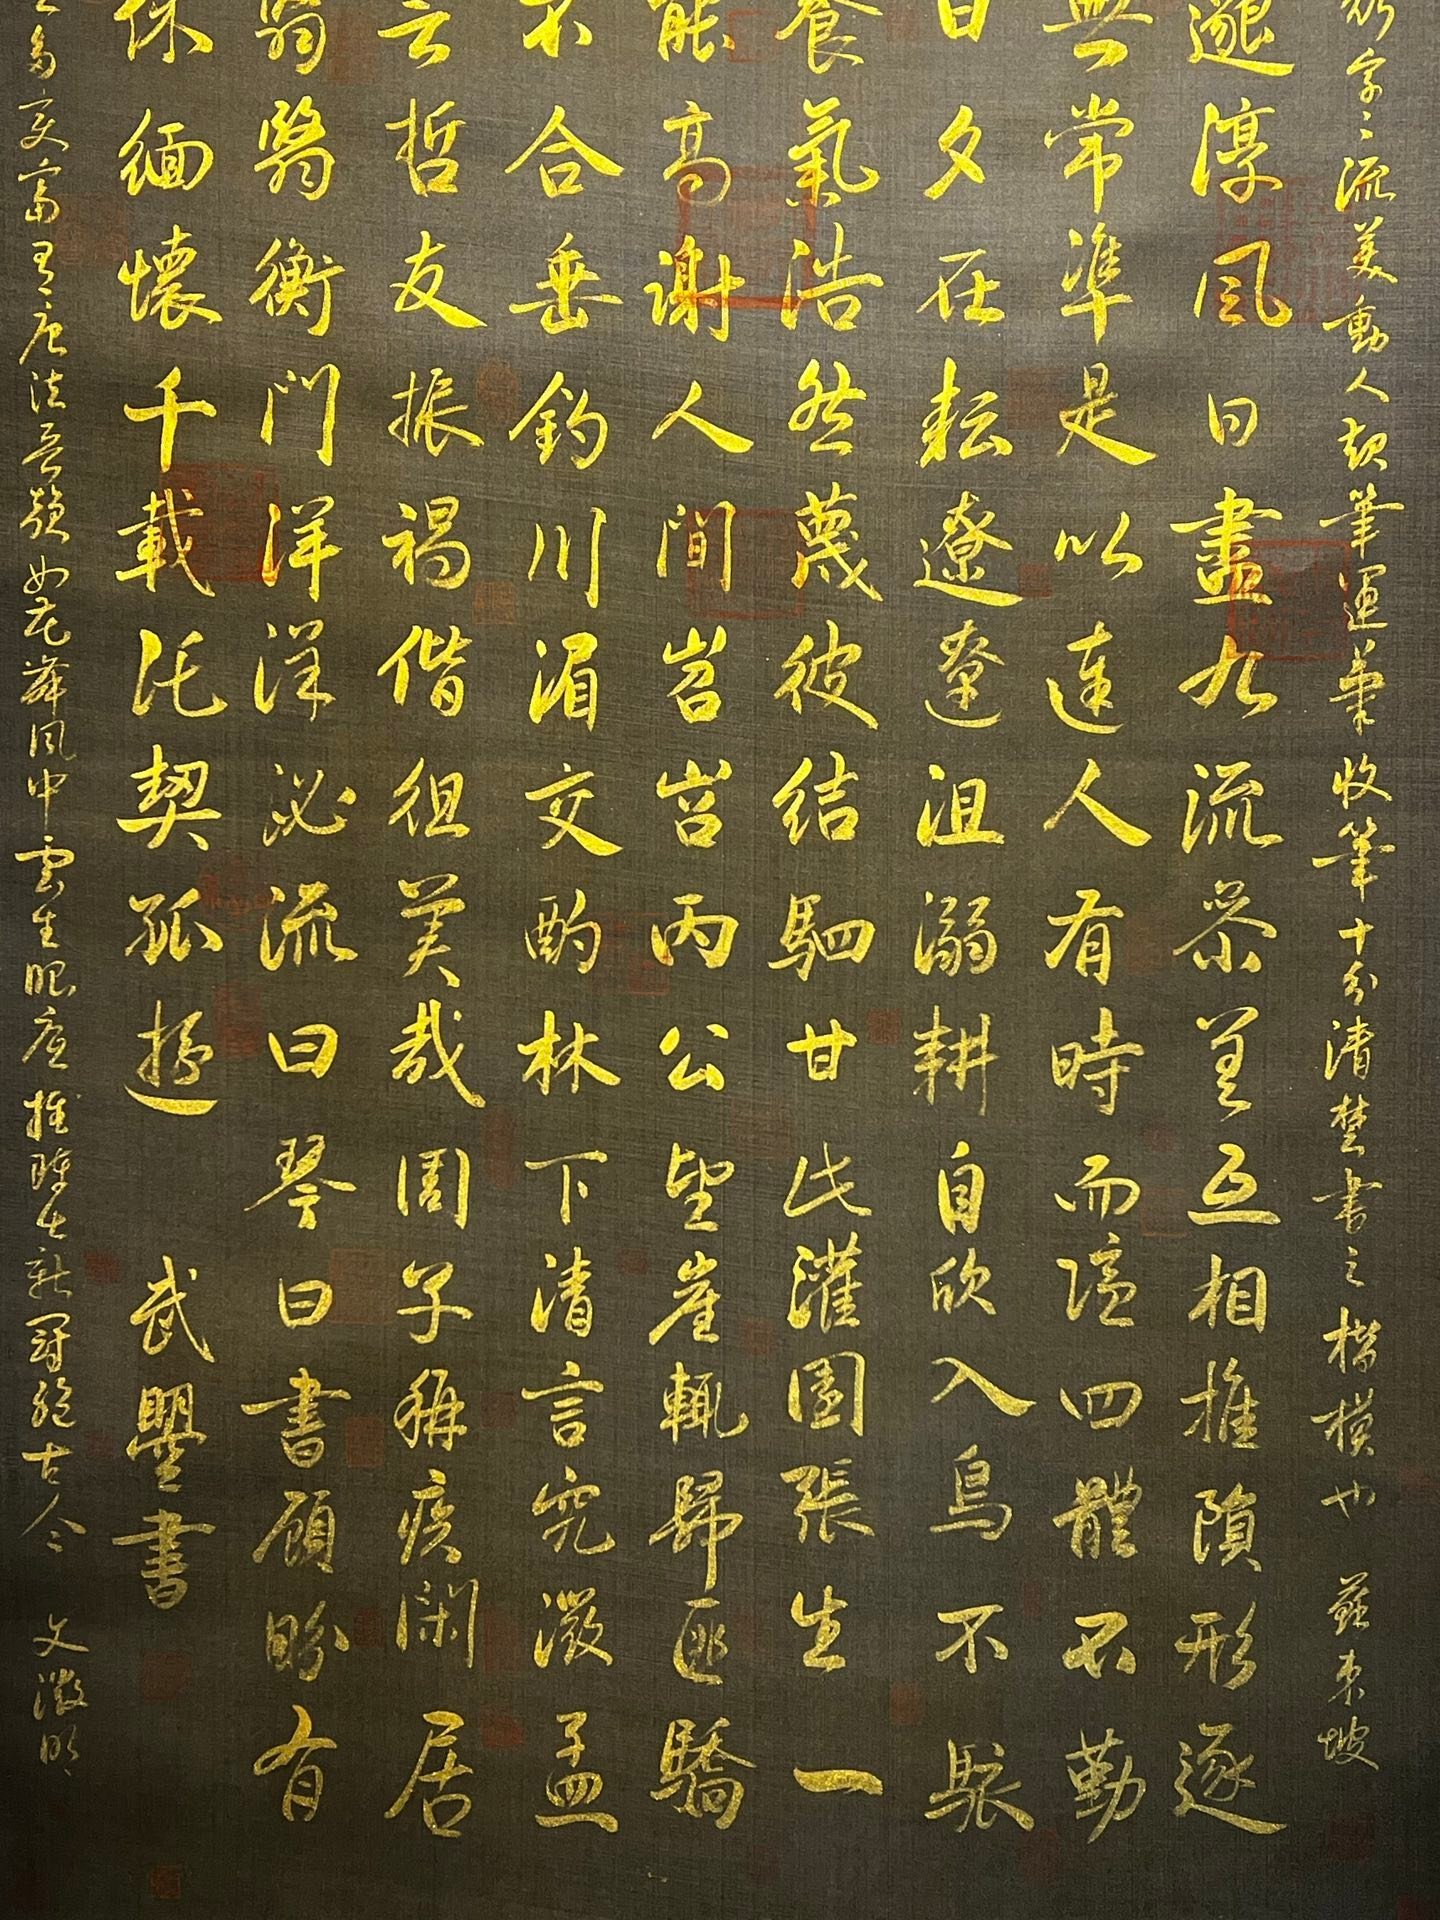 字〻流美動人起筆運筆收筆十分清楚書之楷模也 蘇東坡
邈淳風日盡九流參差互相推隕形逐
無常準是以達人有時而隱四體不勤
日夕在耘遼遼沮溺耕自欣入鳥不駭
養氣浩然蔑彼結駟甘此灌園張生一
能高謝人間岧岧丙公望崖輒歸匪驕
不合垂釣川湄交酌林下清言究微孟
言哲友振褐偕徂美哉周子稱疾閑居
翳翳衡門洋洋泌流曰琴曰書顧盼有
休緬懷千載託契孤遊 武曌書
多變富有唐法如花舞風中雲生眼底推陳出新冠絕古今 文徵明